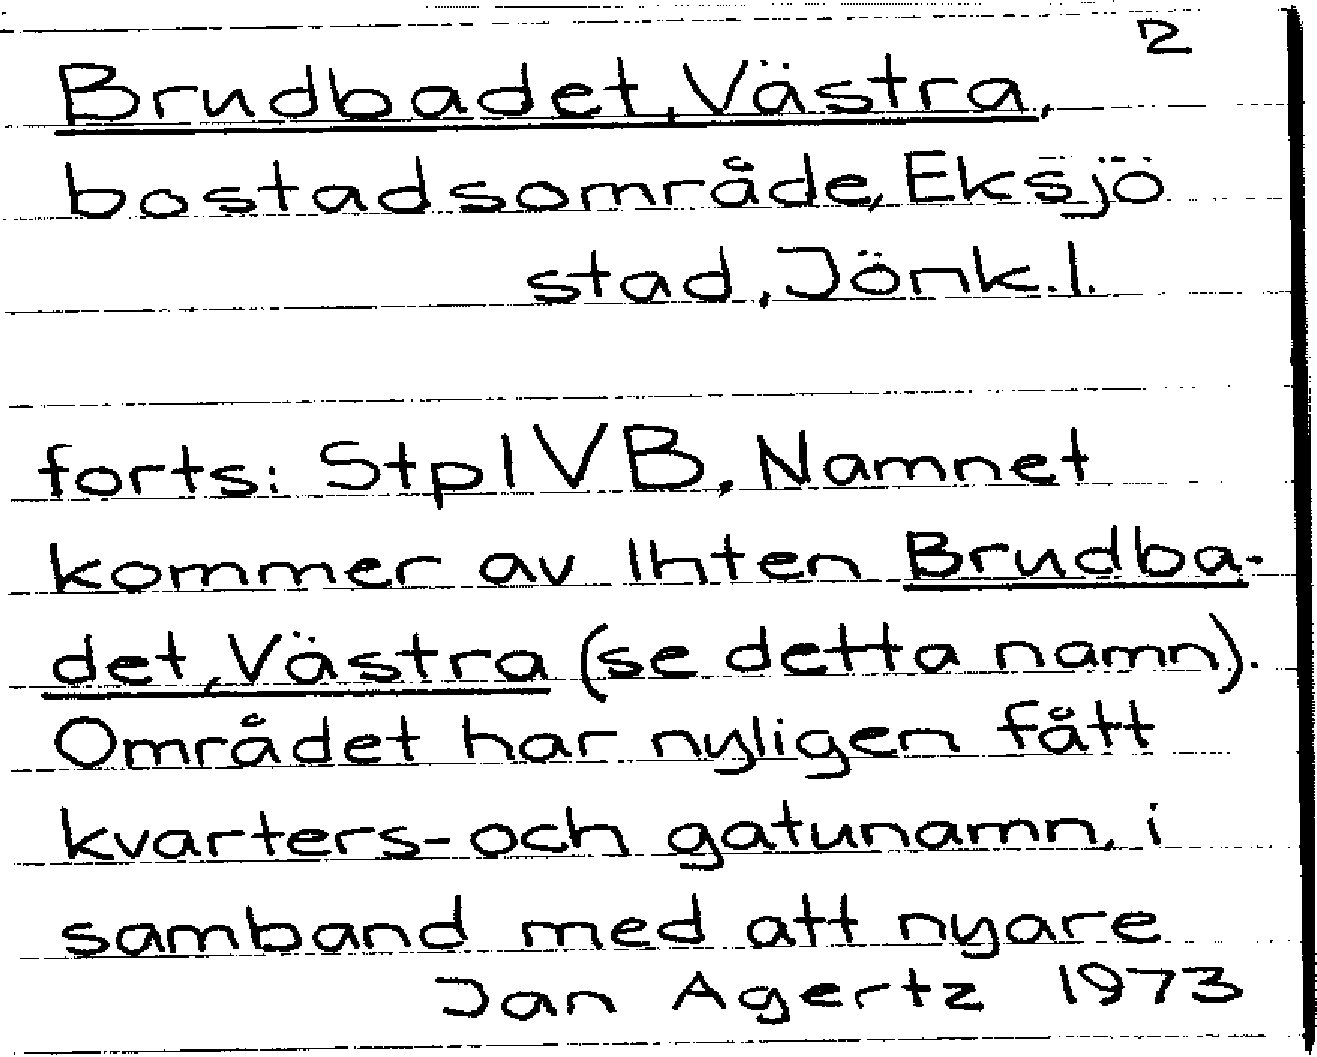 2
Brudbadet, Västra,
bostadsområde, Eksjö
stad, Jönk.l.
forts: Stpl VB. Namnet
kommer av lhten Brudba-
det, Västra (se detta namn).
Området har nyligen fått
kvarters- och gatunamn, i
samband med att nyare
Jan Agertz 1973